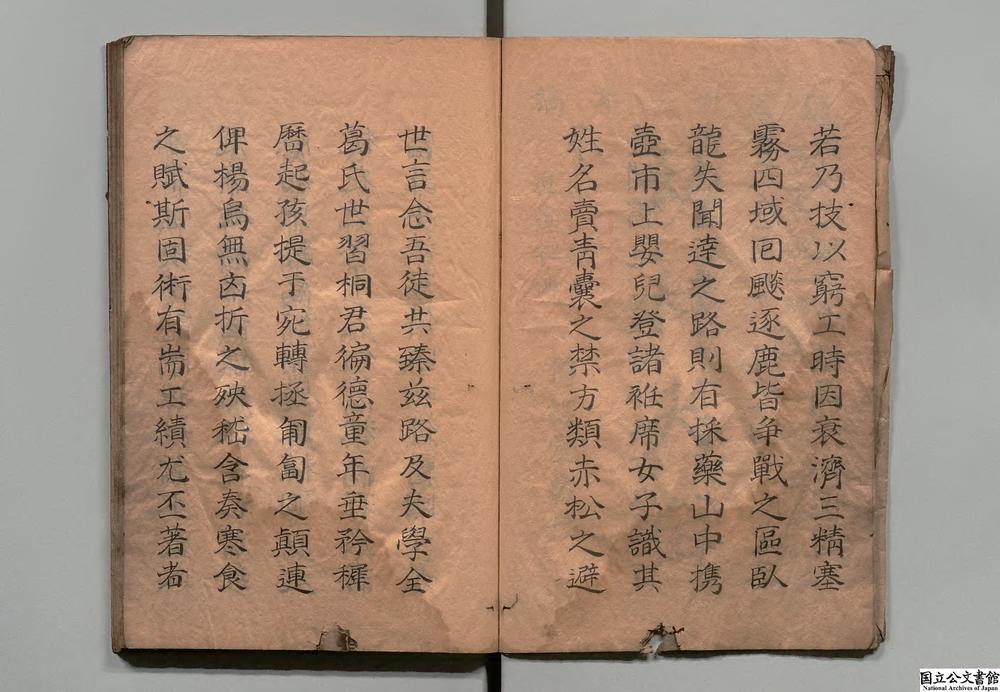 若乃技以窮工時因衰濟三精塞
霧四域囘飇逐鹿皆争戰之區臥
龍失聞達之路則有採藥山中携
壺市上嬰兒登諸袵席女子識其
姓名賣青囊之禁方類赤松之避
世言念吾徒共臻兹路及夫學全
葛氏世習桐君徧德童年垂矜穉
曆起孩提于宛轉拯匍匐之顛連
俾楊烏無凶折之殃嵇含奏寒食
之賦斯固術有耑工績尤丕著者
国立公文書館
National Archives of Japan